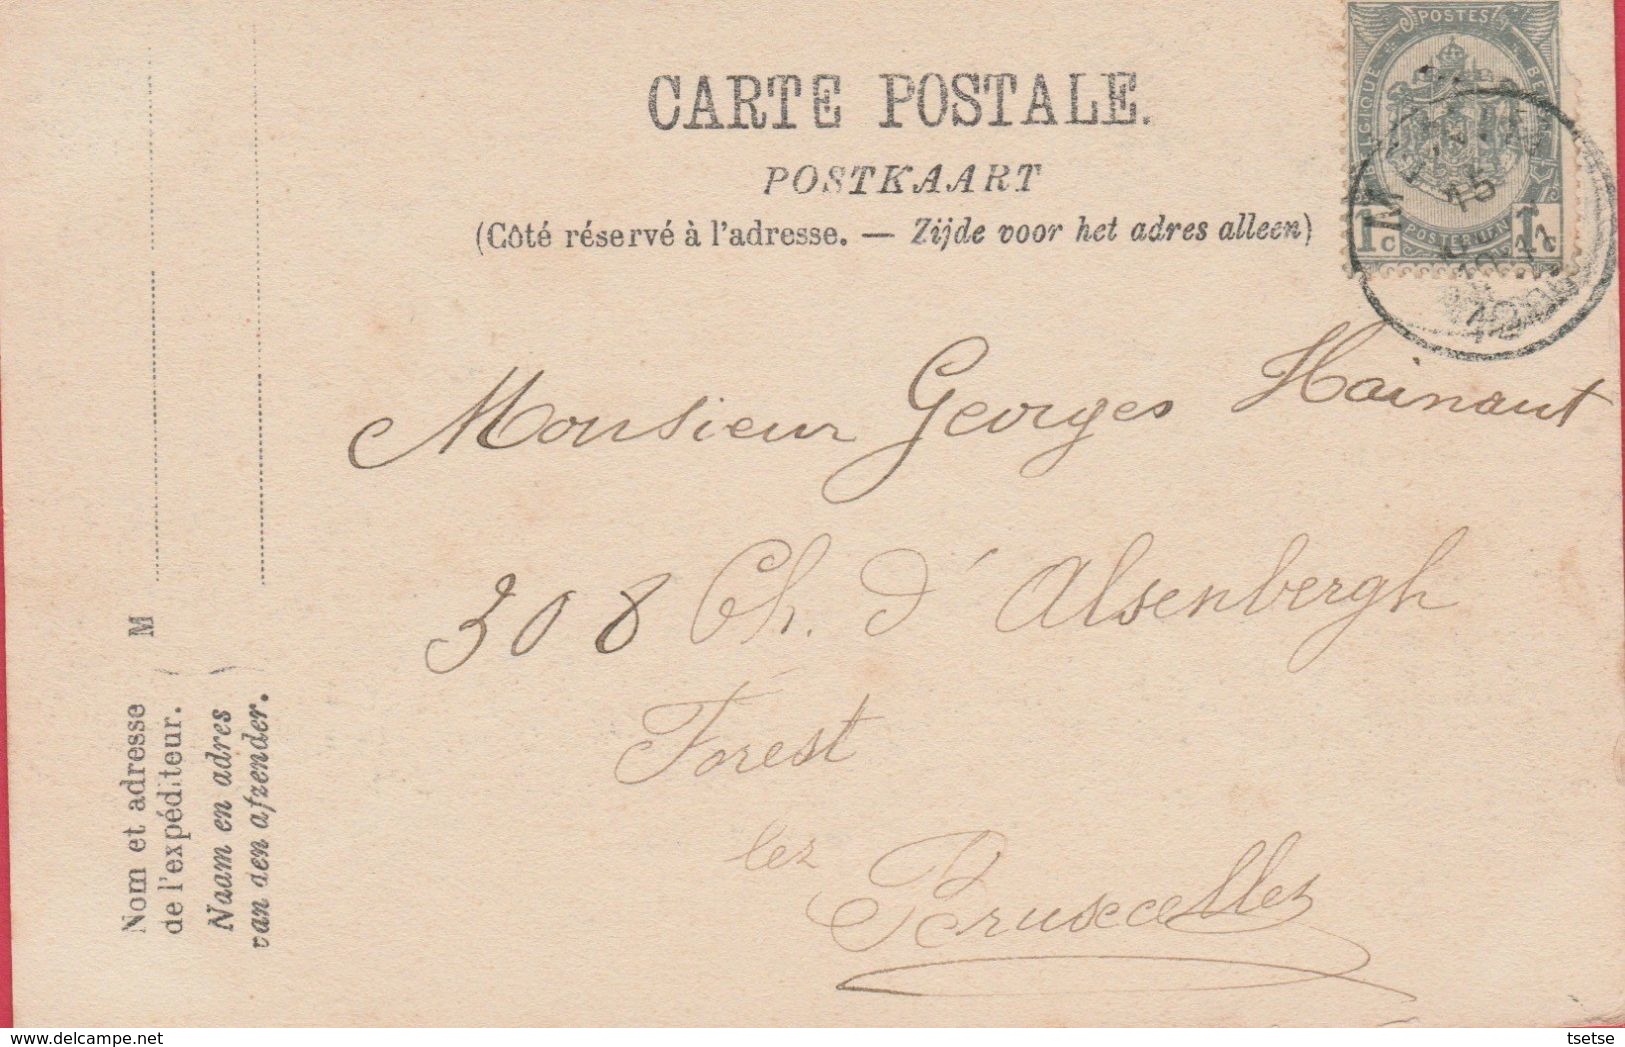 CARTE POSTALE.
POSTKAART
(Côté réservé à l'adresse. — Zijde voor het adres alleen)
POSTES
BELGIQUE
1c POSTERIJEN 1c
15
Monsieur Georges Hainaut
308 Ch. d'Alsenbergh
Forest
lez
Bruxelles
M
Nom et adresse
de l'expéditeur.
Naam en adres
van den afzender.
delcampe.net
tsetse